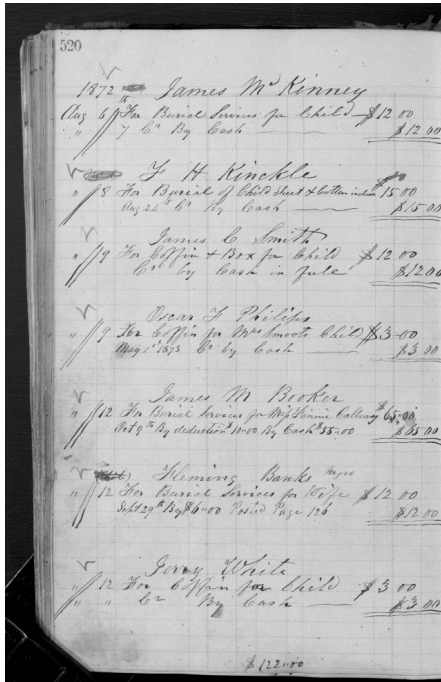 520
1872 James McKinney
Aug 6th For Burial Services for Child $12 00
7 Cr By Cash $12 00
F H Kinckle
" 8 For Burial of Child Sheet & Cotten $15.00
Aug 24th Cr By Cash $15.00
James C Smith
" 9 For Coffin & Box for Child $12 00
Cr by Cash in full $12 00
Oscar F Philips
" 9 For Coffin for Mrs Smoots Child $3-00
May 1st 1873 Cr by Cash $3 00
James M Booker
" 12 For Burial Services for Calloway $65.00
Oct 9th By deduction $10=00 By Cash $55=00 $65 00
Fleming Banks Negro
" 12 For Burial Services for Wife $12 00
Sept 29th By $6=00 Posted Page 126 $12 00
Gerry White
" 12 For Coffin for Child $3 00
" " Cr By Cash $3 00
$122=00